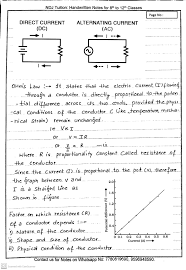 NDJ Tuition: Handwritten Notes for 9th to 12th Classes
Page No.:
DIRECT CURRENT
(DC)
ALTERNATING CURRENT
(AC)
Ohm's Law :→ It states that the electric Current (I) flowing
through a Conductor is directly proportional to the poten
tial difference across its two ends, provided the physi
cal Conditions of the conductor (like, temperature, mecha-
nical strain) remain unchanged.
i.e V ∝ I
or V = IR
where R is proportionality Constant called resistance of
the Conductor.
Since the Current (I) is proportional to the pot (v), therefore
the graph between V and
I is a Straight line as
Shown in figure
Factor on which resistance (R)
of a Conductor depends :→
Nature of Conductor.
Shape and size of Conductor.
Physical condition of the Conductor
Contact us for Notes on Whatsapp No: